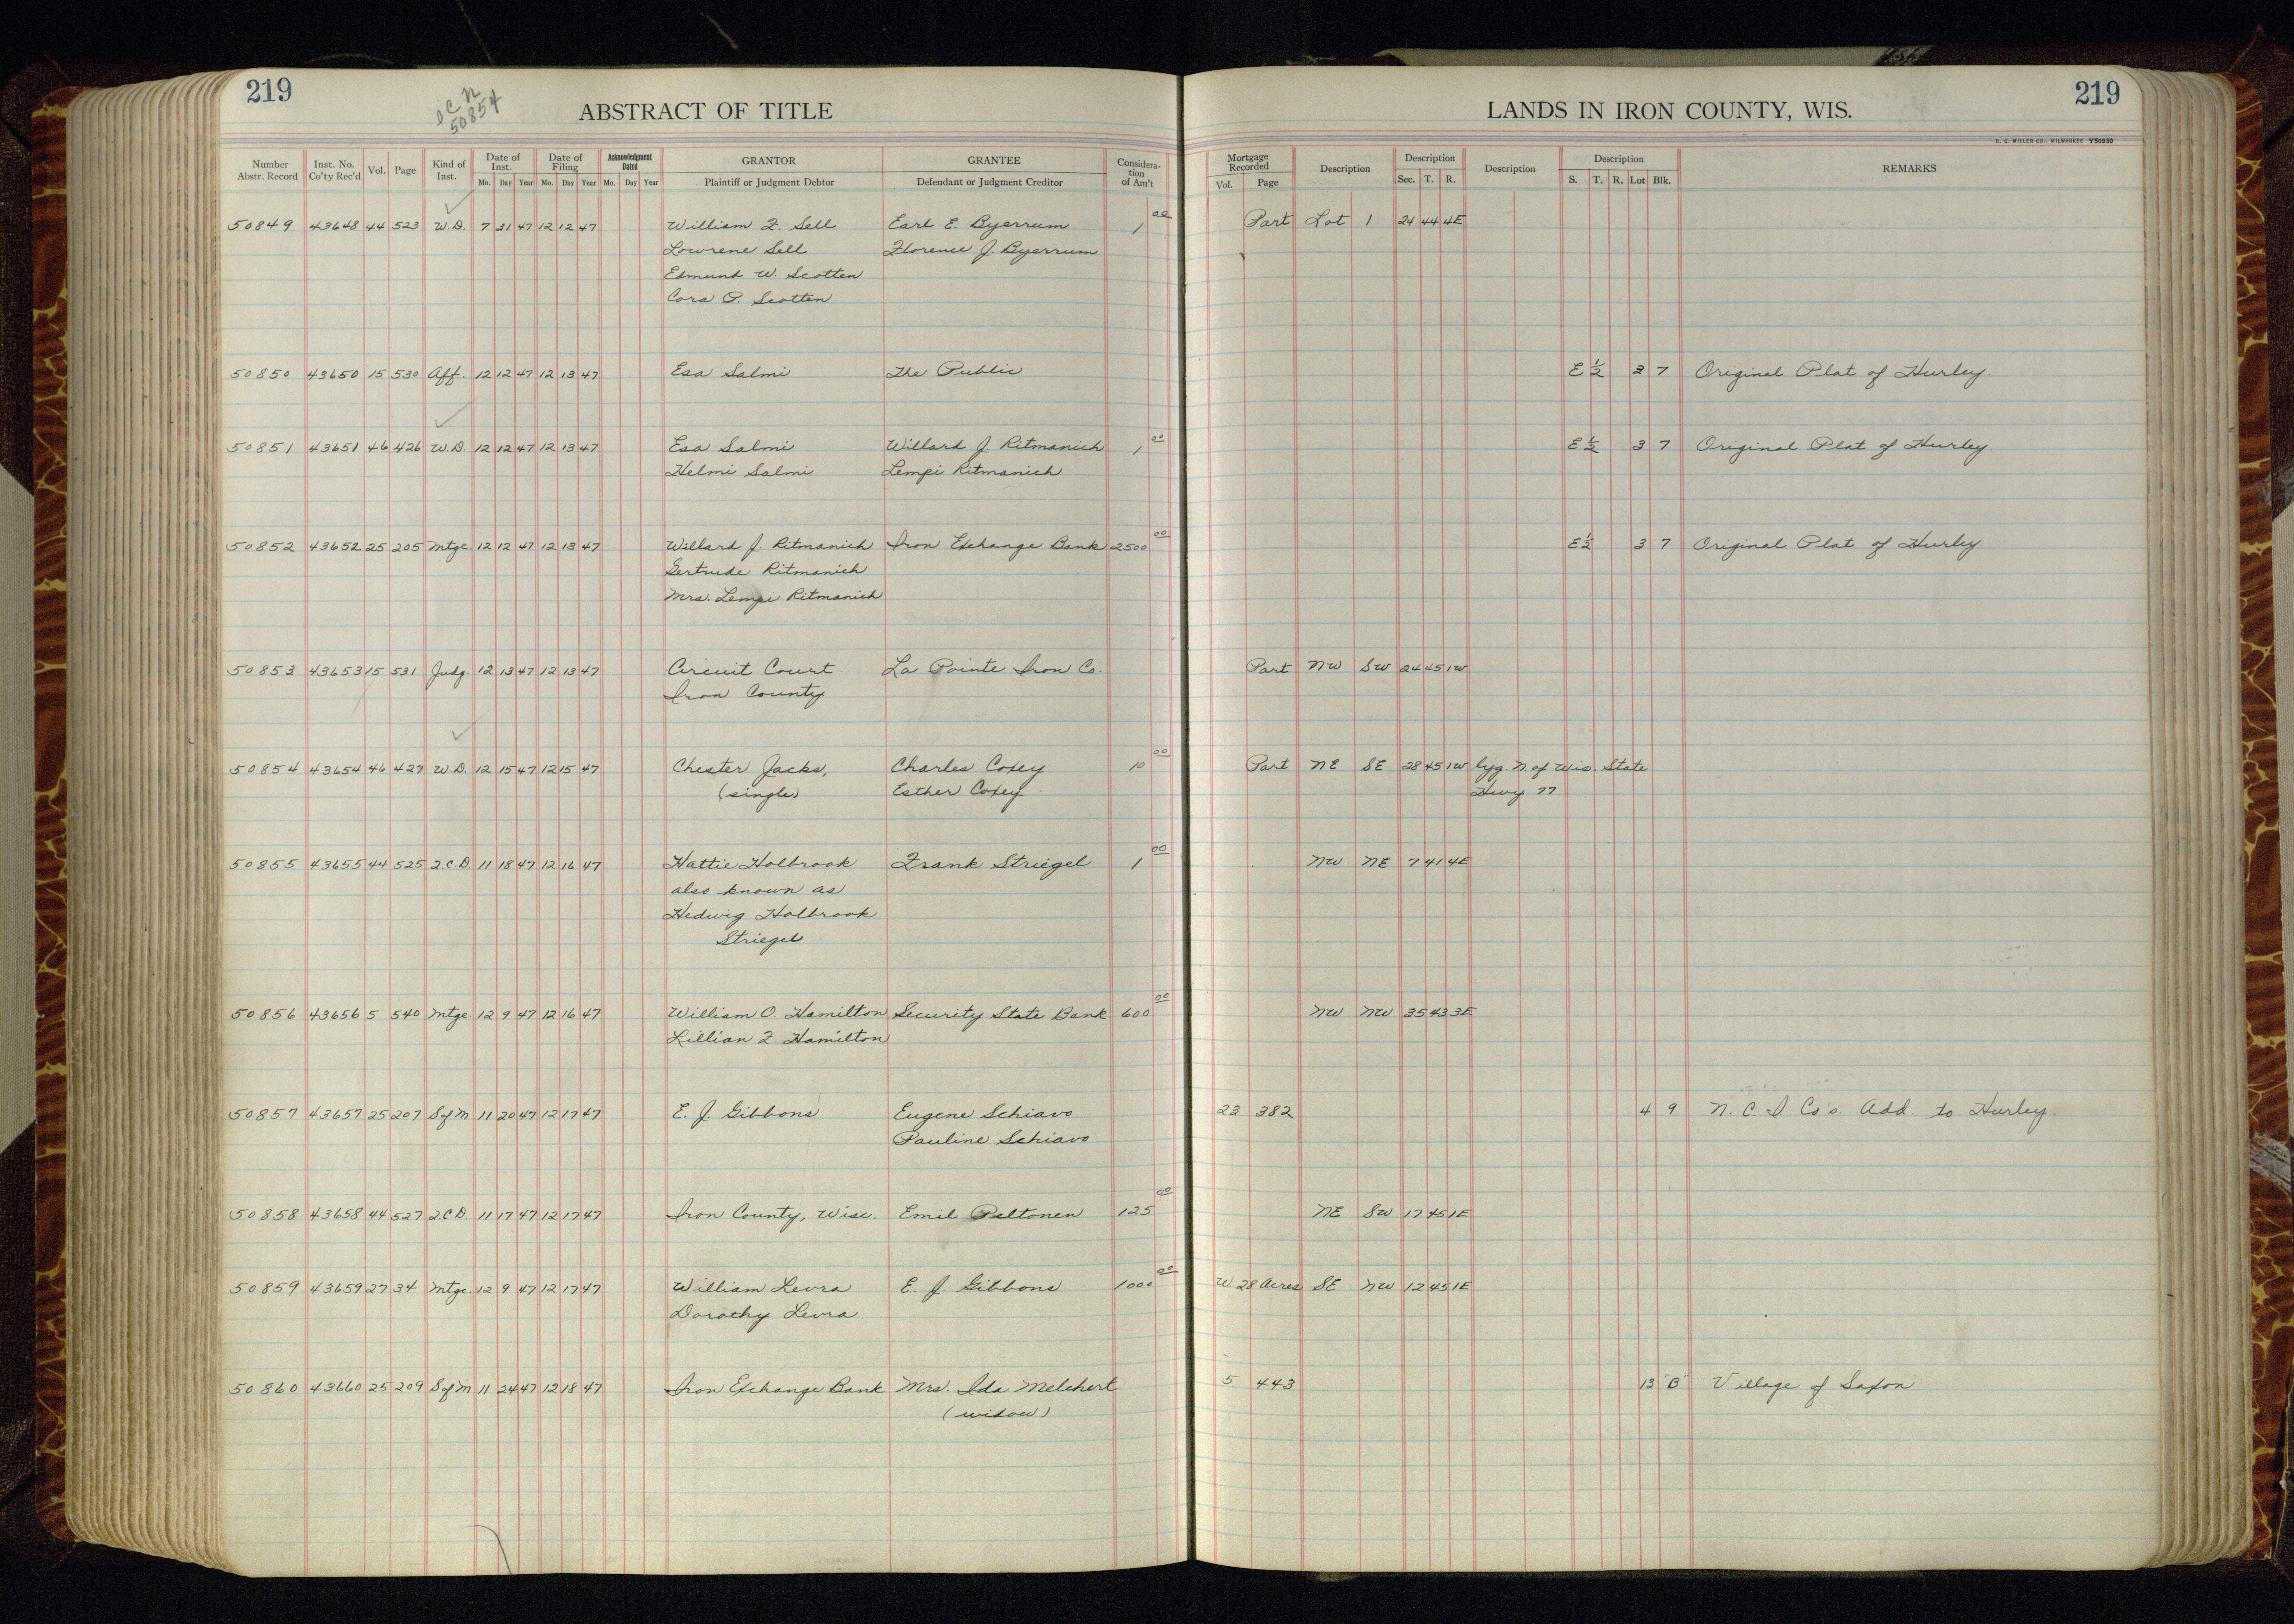 219
D C N
50854
ABSTRACT OF TITLE
Number Abstr. Record Inst. No. Co'ty Rec'd Vol. Page Kind of Inst. Date of Inst. Date of Filing Acknowledgment Dated GRANTOR GRANTEE Considera-tion of Am't
Mo. Day Year Mo. Day Year Mo. Day Year Plaintiff or Judgment Debtor Defendant or Judgment Creditor
50849 43648 44 523 W.D. 7 31 47 12 12 47 William F. Sell Earl E. Byerrum 1 00
Lowrene Sell Florence J. Byerrum
Edmund W. Scotten
Cora P. Scotten
50850 43650 15 530 Aff. 12 12 47 12 13 47 Esa Salmi The Public
50851 43651 46 426 W.D. 12 12 47 12 13 47 Esa Salmi Willard J. Ritmanich 1 00
Helmi Salmi Lempi Ritmanich
50852 43652 25 205 Mtge. 12 12 47 12 13 47 Willard J. Ritmanich Iron Exchange Bank 2500 00
Gertrude Ritmanich
Mrs. Lempi Ritmanich
50853 43653 15 531 Judg. 12 13 47 12 13 47 Circuit Court La Pointe Iron Co.
Iron County
50854 43654 46 427 W.D. 12 15 47 12 15 47 Chester Jacks, Charles Coxey 10 00
(single) Esther Coxey
50855 43655 44 525 Q.C.D. 11 18 47 12 16 47 Hattie Holbrook Frank Striegel 1 00
also known as
Hedwig Holbrook
Striegel
50856 43656 5 540 Mtge 12 9 47 12 16 47 William O. Hamilton Security State Bank 600 00
Lillian F. Hamilton
50857 43657 25 207 S of M 11 20 47 12 17 47 E. J. Gibbons Eugene Schiavo
Pauline Schiavo
50858 43658 44 527 Q.C.D. 11 17 47 12 17 47 Iron County, Wisc. Emil Peltonen 125 00
50859 43659 27 34 Mtge. 12 9 47 12 17 47 William Levra E. J. Gibbons 1000 00
Dorothy Levra
50860 43660 25 209 S of M 11 24 47 12 18 47 Iron Exchange Bank Mrs. Ida Melchert
(widow)
219
LANDS IN IRON COUNTY, WIS.
H. C. MILLER CO., MILWAUKEE Y50930
Mortgage Recorded Description Description Description Description REMARKS
Vol. Page Sec. T. R. S. T. R. Lot Blk.
Part Lot 1 24 44 4E
E 1/2 3 7 Original Plat of Hurley.
E 1/2 3 7 Original Plat of Hurley.
E 1/2 3 7 Original Plat of Hurley
Part NW SW 24 45 1W
Part NE SE 28 45 1W lyg. N. of Wis. State
Hwy 77
NW NE 7 41 4E
NW NW 35 43 3E
23 382 4 9 N. C. I Co's. Add. to Hurley.
NE SW 17 45 1E
W. 28 Acres SE NW 12 45 1E
5 443 13 "B" Village of Saxon